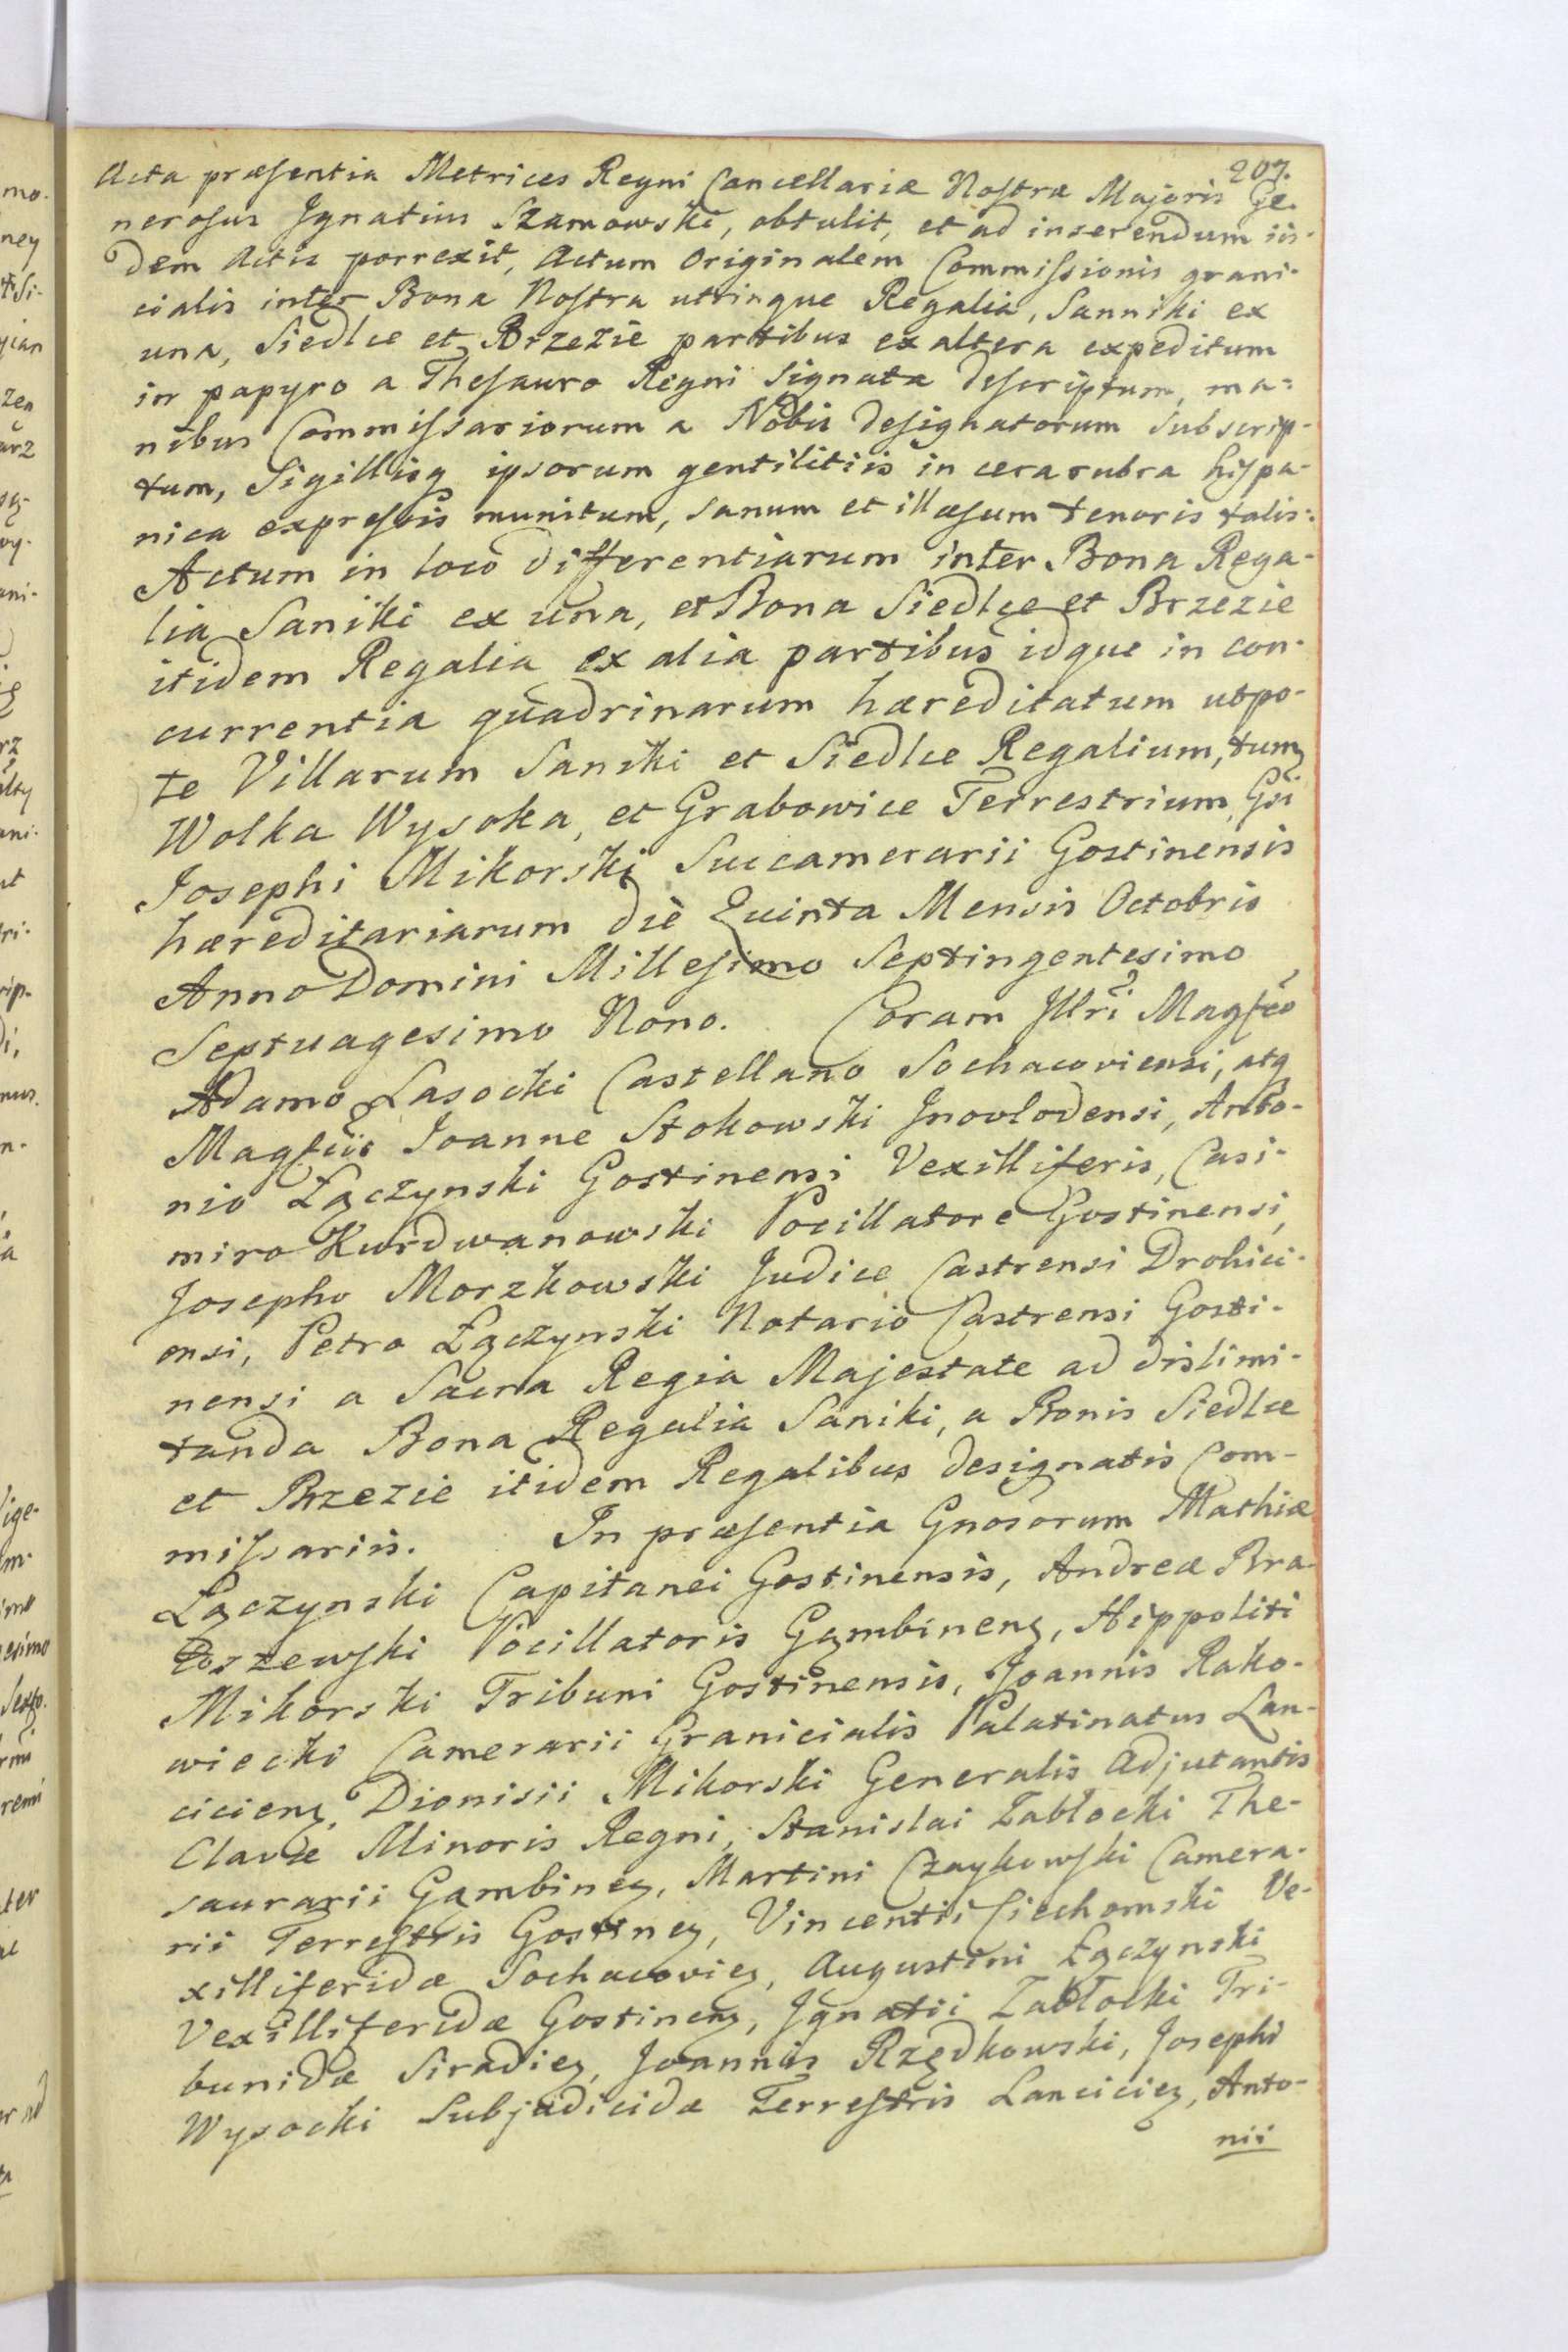 207.
Acta præsentia Metrices Regni Cancellariæ Nostræ Majoris Ge-
nerosus Ignatius Szamowski, obtulit, et ad inserendum iis-
dem Actis porrexit, Actum Originalem Commissionis grani-
cialis inter Bona Nostra utrinque Regalia, Sanniki ex
una, Siedlce et Brzezie partibus ex altera expeditum
in papyro a Thesauro Regni Signata descriptum, ma=
nibus Commissariorum a Nobis designatorum subscrip-
tum, Sigillisq ipsorum gentilitiis in cera rubra hispa-
nica expressis munitum, sanum et illæsum tenoris talis:
Actum in loco differentiarum inter Bona Rega-
lia Saniki ex una, et Bona Siedlce et Brzezie
itidem Regalia ex alia partibus idque in con-
currentia quadrinarum hæreditatum utpo-
te Villarum Saniki et Siedlce Regalium, tum
Wolka Wysoka, et Grabowice Terrestrium, Gsi
Josephi Mikorski Succamerarii Gostinensis
hæreditariarum die Quinta Mensis Octobris
Anno Domini Millesimo Septingentesimo
Septuagesimo Nono. Coram Illri Magfco
Adamo Lasocki Castellano Sochacoviensi, atq
Magfciis Joanne Stokowski Inovlodensi, Anto-
nio Łączynski Gostinensi Vexilliferis, Casi-
miro Kurdwanowski Pocillatore Gostinensi,
Josepho Morzkowski Judice Castrensi Drohici-
ensi, Petro Łączynski Notario Castrensi Gosti-
nensi a Sacra Regia Majestate ad dislimi-
tanda Bona Regalia Saniki, a Bonis Siedlce
et Brzezie itidem Regalibus designatis Com-
missariis. In præsentia Gnosorum Mathiæ
Łączynski Capitanei Gostinensis, Andreæ Bra-
Pocillatoris Gąmbinens, Hippoliti
Mikorski Tribuni Gostinensis, Joannis Rako-
wiecki Camerarii Granicialis Palatinatus Lan-
ciciens, Dionisii Mikorski Generalis Adjutantis
Clavæ Minoris Regni, Stanislai Zabłocki The-
saurarii Gąmbines, Martini Czaykowski Camera-
rii Terrestris Gostines, Vincentii Ciechomski Ve-
xilliferidæ Sochacovies, Augustini Łączynski
Vexilliferidæ Gostinens, Ignatii Zabłocki Tri-
bunidæ Siradies, Joannis Rzędkowski, Josephi
Wysocki Subjudicidæ Terrestris Lancicies, Anto-
nii